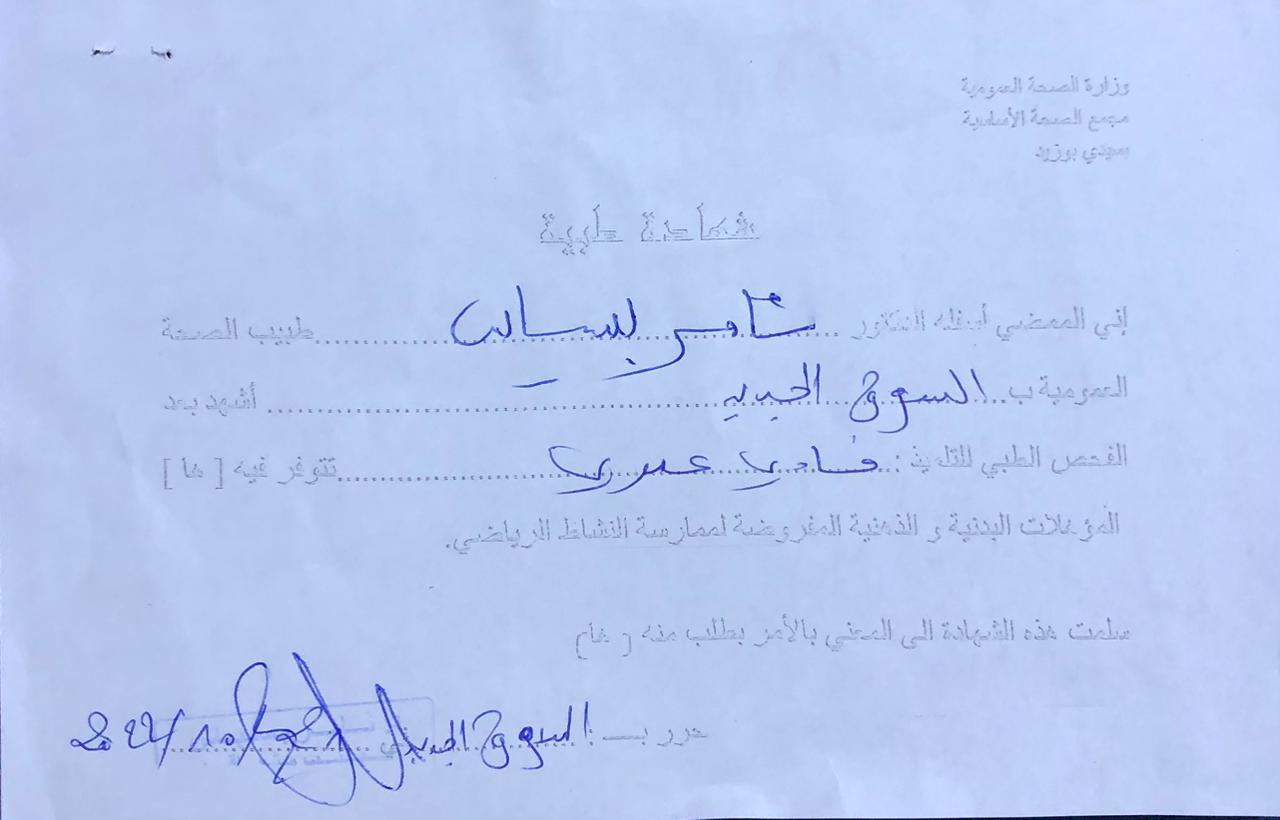 وزارة الصحة العمومية
مجمع الصحة الأساسية
بسيدي بوزيد
شهادة طبية
إني الممضي أسفله الدكتور ........ طبيب الصحة
العمومية ب.... السوق الجديد ........ أشهد بعد
الفحص الطبي للتلميذ : فادي عمري ........ تتوفر فيه [ ها ]
المؤهلات البدنية و الذهنية المفروضة لممارسة النشاط الرياضي.
سلمت هذه الشهادة الى المعني بالأمر بطلب منه ( ها)
حرر بـ السوق الجديد في